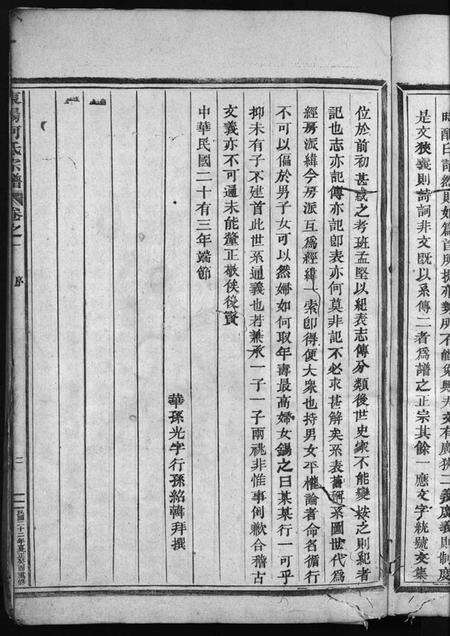 是文狹義則詩詞非文既以系傳二者為譜之正宗其餘一應文字統號文集
位於前初甚紙之考班孟堅以紀表志傳分類後世史家不能變按之則紀者
記也志亦記傳亦記即表亦何莫非記不必求甚解矣系表舊稱系圖世代為
經房派為緯今房派互為經緯一索即得便大衆也持男女平權論者命名循行
不可以偏於男子女可以然婦如何取年壽最高婦女錫之曰某某行一可乎
抑未有子不建首此世系通義也若兼承一子一子兩祧非惟事例歉合稽古
文義亦不可通未能釐正敬俟後賢
中華民國二十有三年端節
華孫光字行孫紹韓拜撰
東陽何氏宗譜
卷之一
序